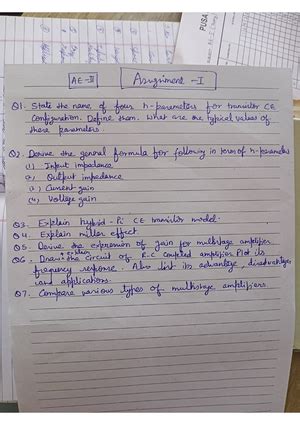 PUSA
AE-II
Assignment - I
Q1. State the name of four h-parameters for transistor CE
Configuration. Define them. What are the typical values of
these parameters.
Q2. Derive the general formula for following in term of h-parameters
(1) Input impedance
(2) Output impedance
(3) Current gain
(4) Voltage gain
Q3. Explain hybrid-Pi CE transistor model.
Q4. Explain miller effect
Q5. Derive the expression of gain for multistage amplifier
Q6. Draw & explain the circuit of R.C coupled amplifier Plot its
frequency response. Also list its advantage, disadvantages
and applications.
Q7. Compare various types of multistage amplifiers